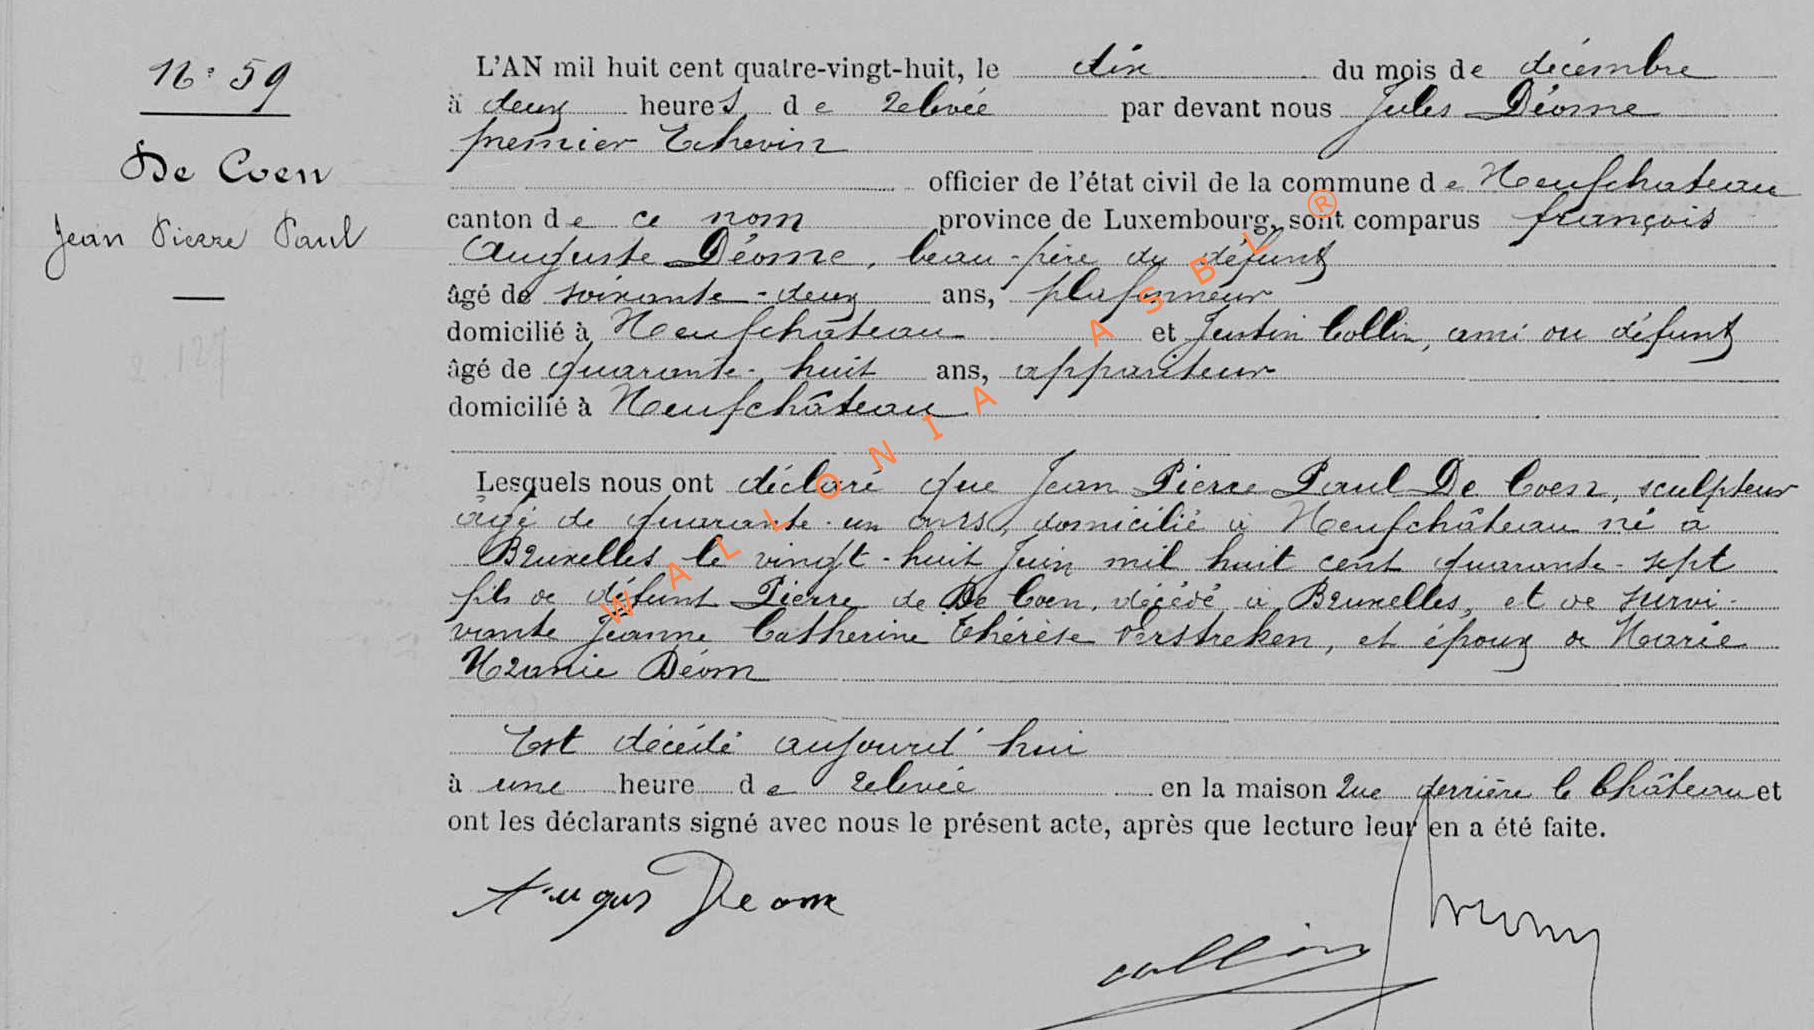 N° 59
De Coen
Jean Pierre Paul
L'AN mil huit cent quatre-vingt-huit, le dix du mois de décembre
à deux heures de relevée par devant nous Jules Déome
premier Echevin
officier de l'état civil de la commune de Neufchateau
canton de ce nom province de Luxembourg, sont comparus françois
Auguste Déome, beau-père du défunt
âgé de soixante-deux ans, plafonneur
domicilié à Neufchâteau et Justin Collin, ami du défunt
âgé de quarante-huit ans, appariteur
domicilié à Neufchâteau
Lesquels nous ont déclaré que Jean Pierre Paul De Coen, sculpteur
âgé de quarante-un ans, domicilié à Neufchâteau né à
Bruxelles le vingt-huit Juin mil huit cent quarante-sept
fils de défunt Pierre de De Coen, décédé à Bruxelles, et de survi-
vante Jeanne Catherine Thérèse Verstreken, et époux de Marie
Uranie Déom
Est décédé aujourd'hui
à une heure de relevée en la maison rue derrière le Château et
ont les déclarants signé avec nous le présent acte, après que lecture leur en a été faite.
Deom
collin
WALLONIA ASBL ®